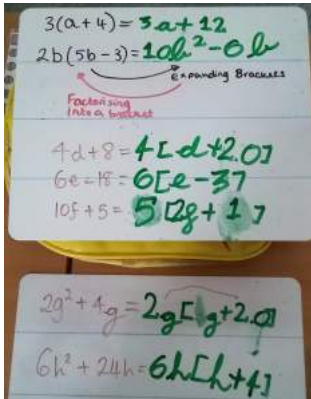 3(a+4)=3a+12
2b(5b-3)=10b²-6b
expanding Brackets
Factorising
into a bracket
4d+8=4[d+2.0]
6e-18=6[e-3]
10f+5=5[2f+1]
2g²+4g=2g[1g+2.0]
6h²+24h=6h[h+4]